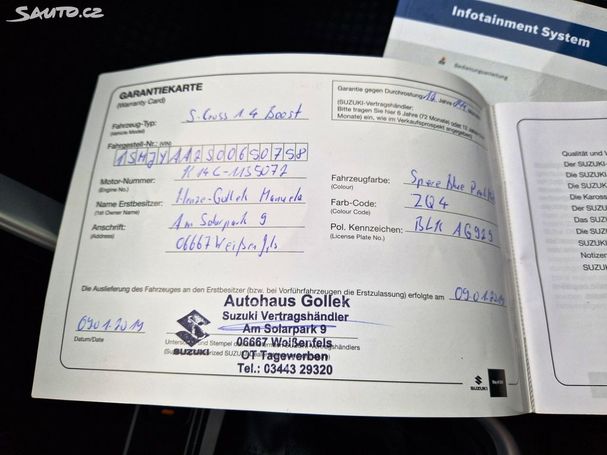 SAUTO.CZ
Infotainment System
Bedienungsanleitung
GARANTIEKARTE
(Warranty Card)
Garantie gegen Durchrostung: 12 Jahre
(SUZUKI-Vertragshändler:
Bitte tragen Sie hier 6 Jahre (72 Monate) oder 12 Jahre
Monate) ein, wie im Verkaufsprospekt angegeben)
Fahrzeug-Typ: S-Cross 1.4 Boost
(Vehicle Model)
Fahrgestell-Nr.: (VIN)
Motor-Nummer: K14C-1155072
(Engine No.)
Name Erstbesitzer: Manuela
(1st Owner Name)
Anschrift: Am Solarpark 9
(Address)
06667 Weißenfels
Fahrzeugfarbe: Blue
(Colour)
Farb-Code: ZQ4
(Colour Code)
Pol. Kennzeichen: BLK AG929
(License Plate No.)
Die Auslieferung des Fahrzeuges an den Erstbesitzer (bzw. bei Vorführfahrzeugen die Erstzulassung) erfolgte am 09.01.2019
09.01.2019
Datum/Date
SUZUKI
Autohaus Gollek
Suzuki Vertragshändler
Am Solarpark 9
06667 Weißenfels
OT Tagewerben
Tel.: 03443 29320
SUZUKI
Qualität und
Der SUZUKI
Die SUZUKI
Die Kaross
Der SUZU
Das SUZU
Die SUZU
Notizen
Der SUZU